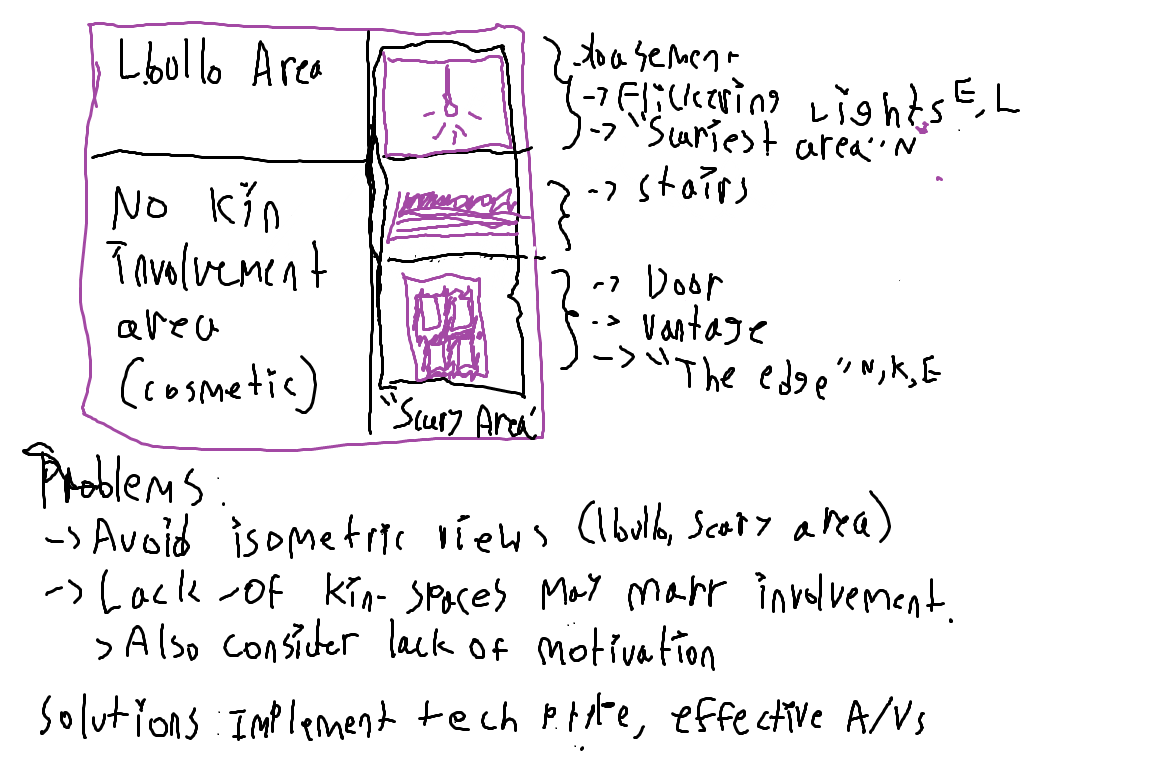 Lbullo Area
No Kin
involvement
area
(cosmetic)
"Scary Area"
basement
-> Flickering Lights E, L
-> "Scariest area" N
-> stairs
-> Door
-> vantage
-> "The edge" N, K, E
Problems:
-> Avoid isometric views (lbullo, scary area)
-> Lack -of kin- spaces may marr involvement.
> Also consider lack of motivation
Solutions: Implement tech, effective A/Vs